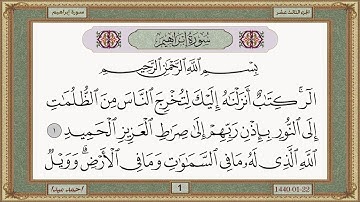 سورة إبراهيم
الجزء الثالث عشر
سُورَةُ إِبْرَاهِيمَ
بِسْمِ اللَّهِ الرَّحْمَٰنِ الرَّحِيمِ
الٓر ۚ كِتَٰبٌ أَنزَلْنَٰهُ إِلَيْكَ لِتُخْرِجَ ٱلنَّاسَ مِنَ ٱلظُّلُمَٰتِ
إِلَى ٱلنُّورِ بِإِذْنِ رَبِّهِمْ إِلَىٰ صِرَٰطِ ٱلْعَزِيزِ ٱلْحَمِيدِ ١
ٱللَّهِ ٱلَّذِى لَهُۥ مَا فِى ٱلسَّمَٰوَٰتِ وَمَا فِى ٱلْأَرْضِ ۗ وَوَيْلٌ
1
1440-01-22